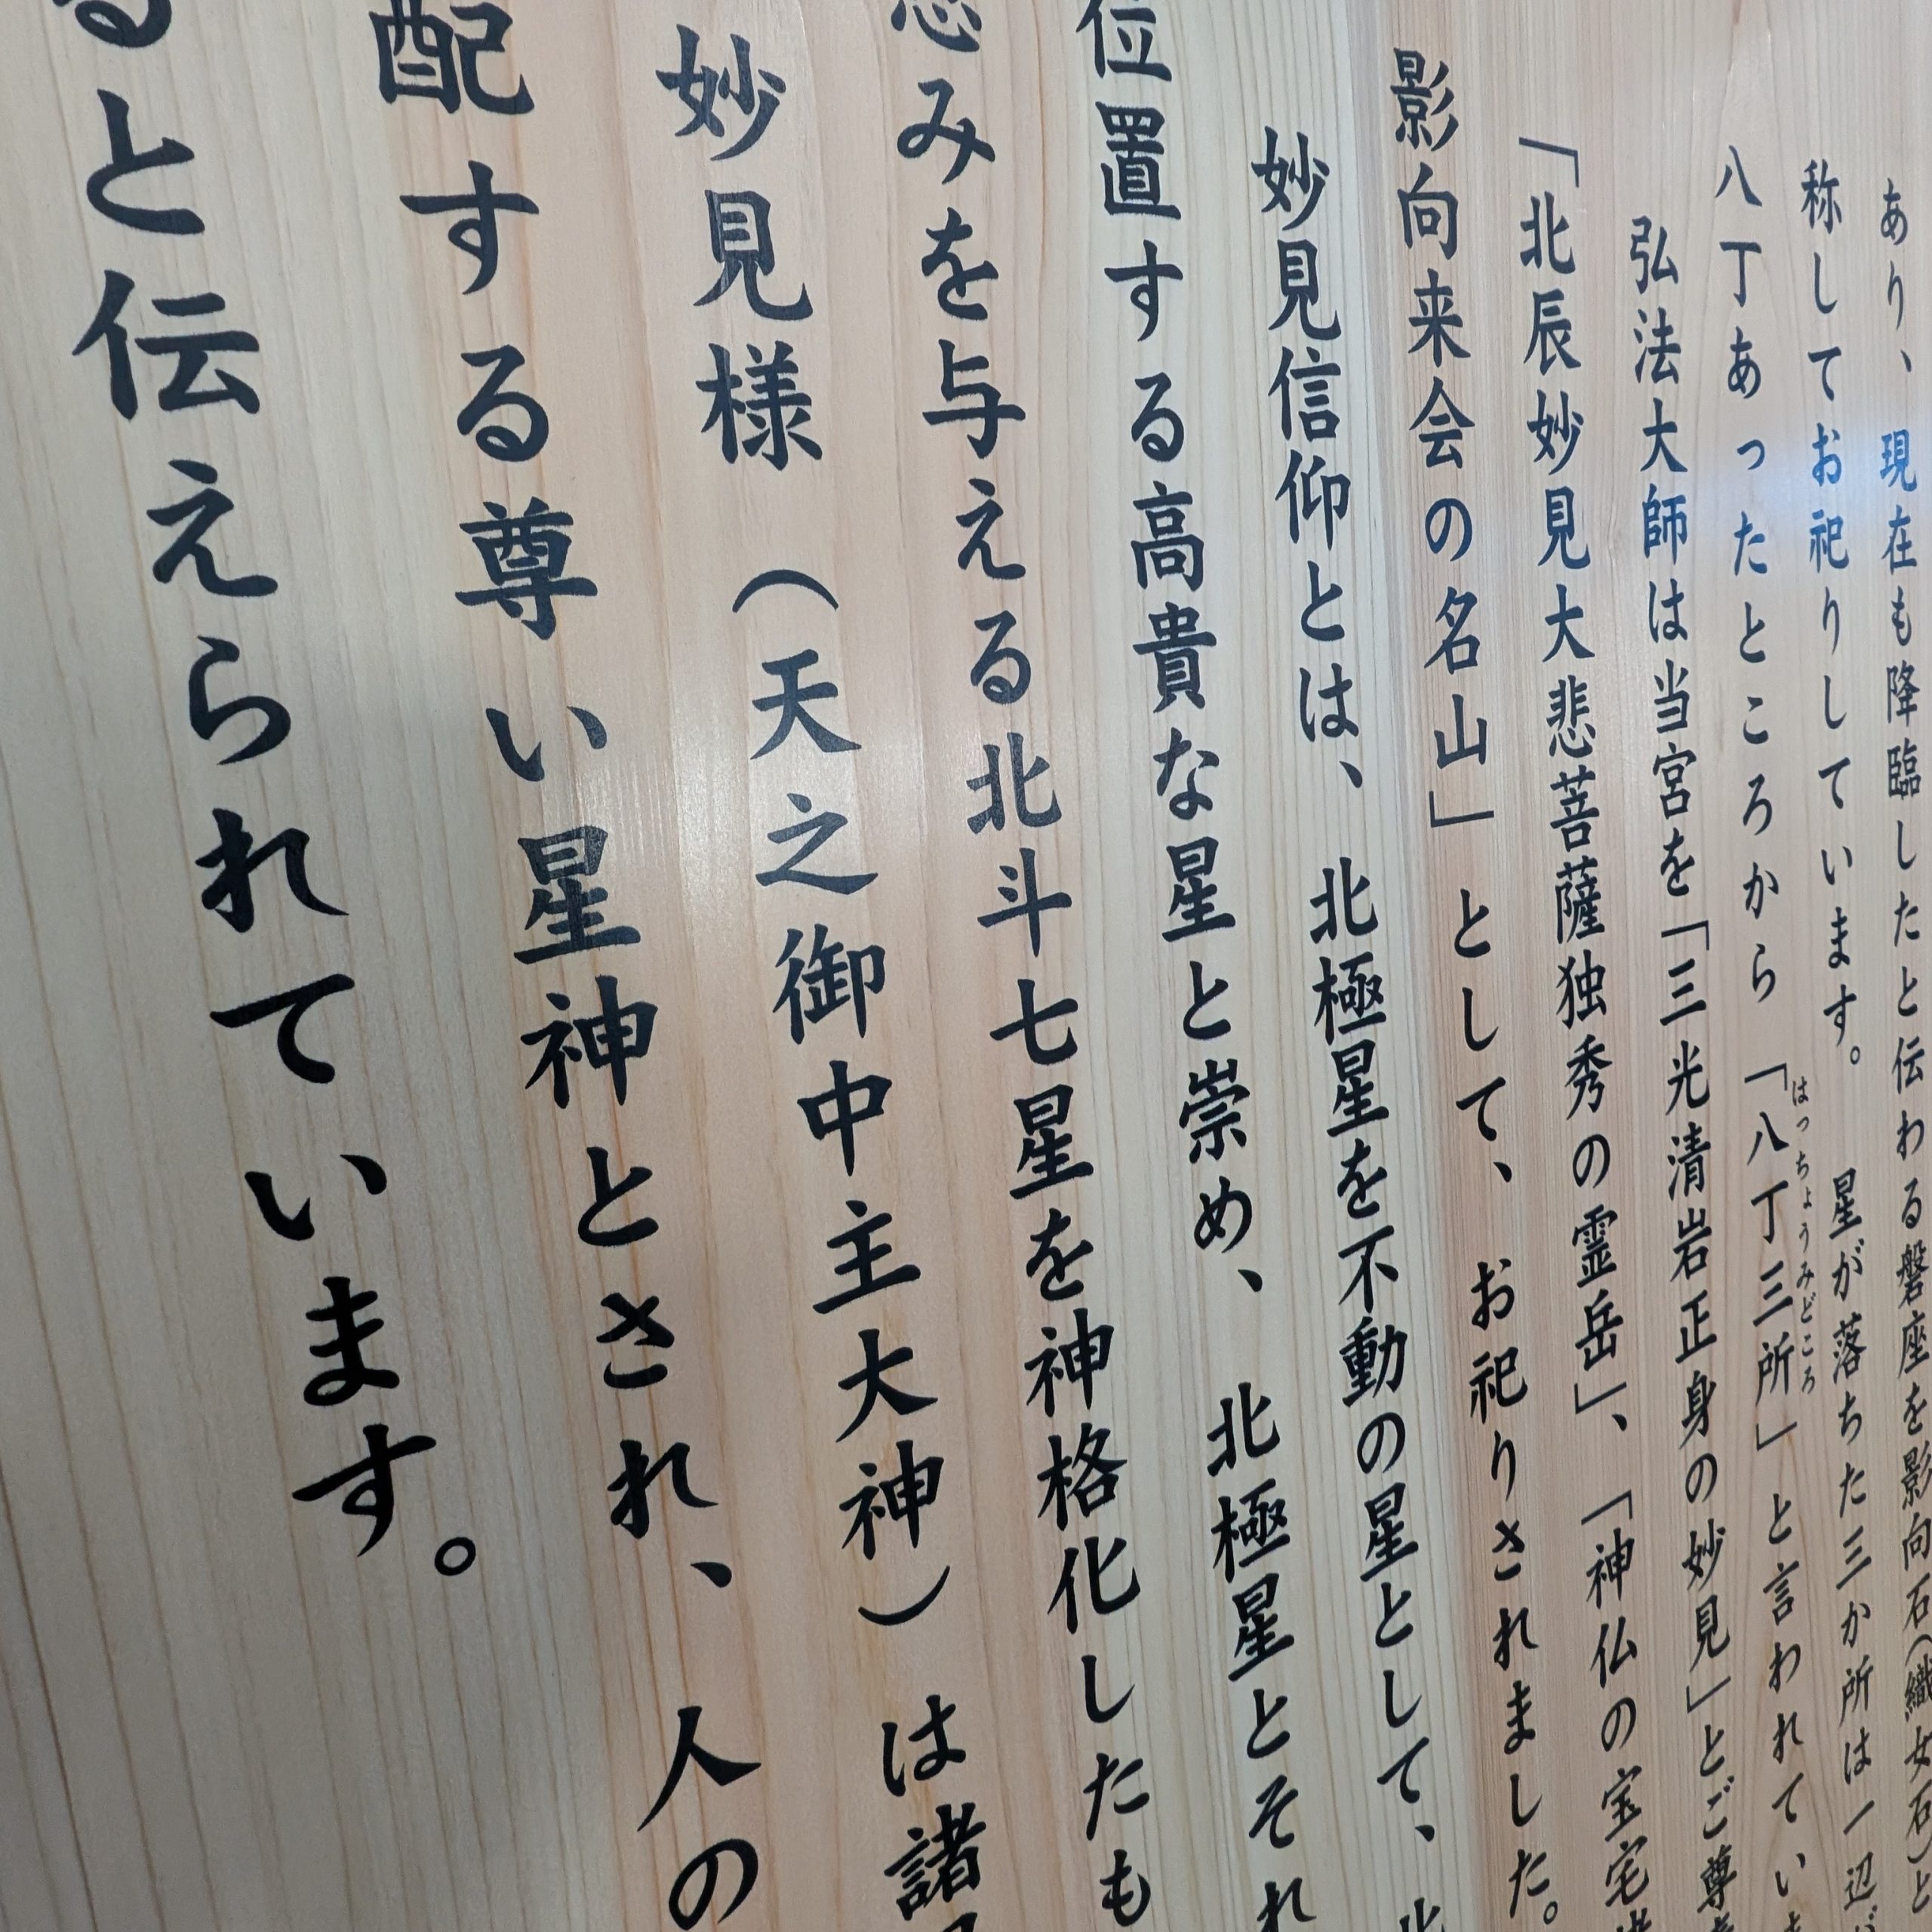 あり、現在も降臨したと伝わる磐座を影向石(織女石)と
称してお祀りしています。 星が落ちた三か所は一辺が
八丁あったところから「八丁三所」と言われていま
はっちょうみどころ
弘法大師は当宮を「三光清岩正身の妙見」とご尊
「北辰妙見大悲菩薩独秀の霊岳」、「神仏の宝宅
影向来会の名山」として、お祀りされました。
妙見信仰とは、北極星を不動の星として、北
位置する高貴な星と崇め、北極星とそれ
みを与える北斗七星を神格化したも
妙見様(天之御中主大神)は諸
配する尊い星神とされ、人の
ると伝えられています。